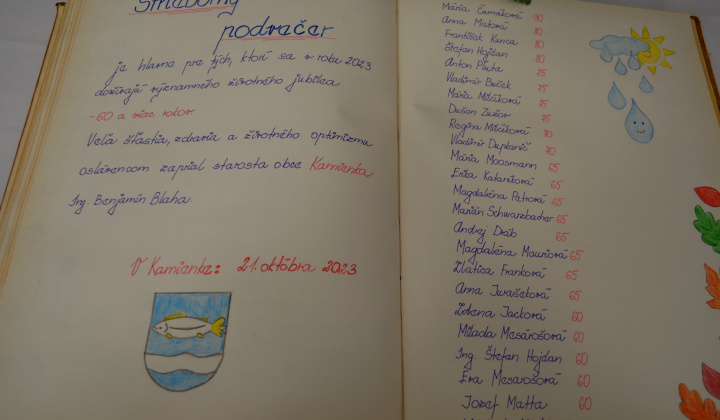 Strieborný
podvečer
je hlavne pre tých, ktorí sa v roku 2023
dožívajú významného životného jubilea
-60 a viac rokov
Veľa šťastia, zdravia a životného optimizmu
oslávencom zaprial starosta obce Kamienka
Ing. Benjamín Blaha.
V Kamienke: 21. októbra 2023
Mária 90
Anna 80
František Kunca 80
Štefan Hojdan 80
Anton Pluta 75
Vladimír 75
Mária 75
Dušan 75
Regina 70
Vladimír 70
Mária Moosmann 65
Erika 65
Magdaléna Petrová 65
Marián Schwarzbacher 65
Andrej Dráb 65
Magdaléna Mauriová 65
Zlatica Franková 65
Anna Ivašeková 65
Zdena Jacková 60
Milada Mesárošová 60
Ing. Štefan Hojdan 60
Eva Mesarošová 60
Jozef Matta 60